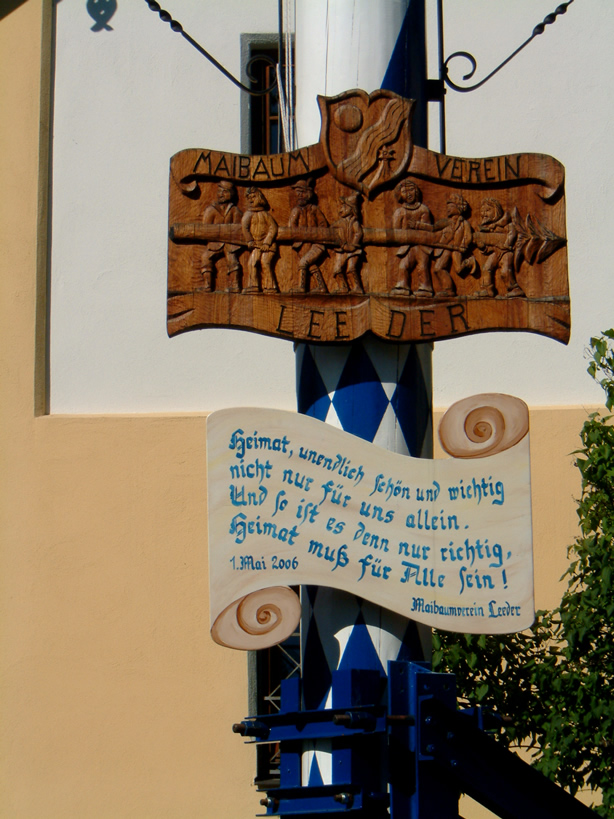 MAIBAUM VEREIN
LEEDER
Heimat, unendlich schön und wichtig
nicht nur für uns allein.
Und so ist es denn nur richtig,
Heimat muß für Alle sein!
1. Mai 2006
Maibaumverein Leeder